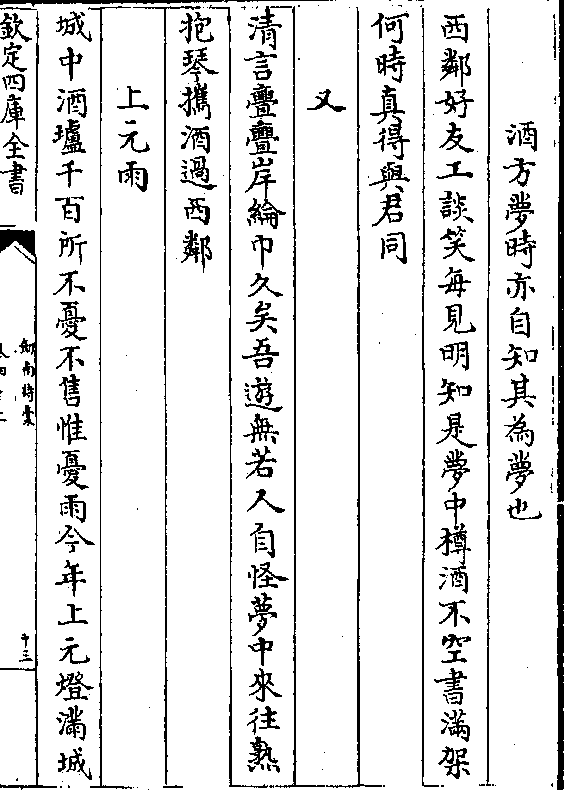 酒方夢時亦自知其為夢也
西鄰好友工談笑每見明知是夢中樽酒不空書滿架
何時真得與君同
又
清言亹亹岸綸巾久矣吾遊無若人自怪夢中來往熟
抱琴攜酒過西鄰
上元雨
城中酒壚千百所不憂不售惟憂雨今年上元燈滿城
欽定四庫全書
劒南詩稾
十三